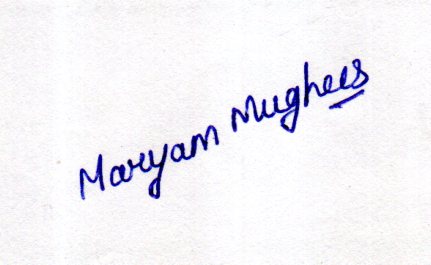 Maryam Mughees